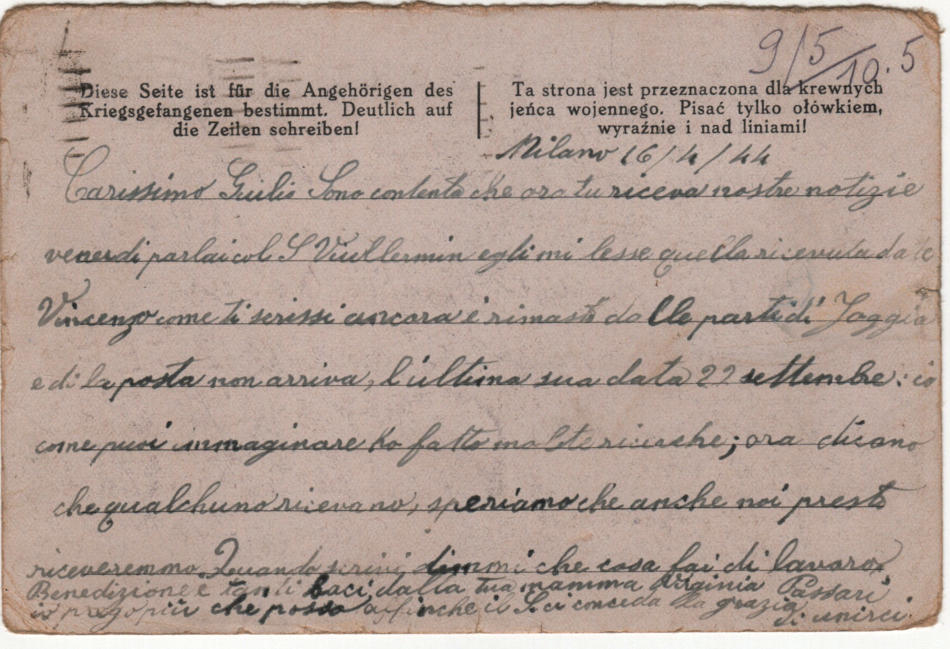 9/5/10.5
Diese Seite ist für die Angehörigen des
Kriegsgefangenen bestimmt. Deutlich auf
die Zeilen schreiben!
Ta strona jest przeznaczona dla krewnych
jeńca wojennego. Pisać tylko ołówkiem,
wyraźnie i nad liniami!
Milano 16/4/44
Carissimo Giulio Sono contenta che ora tu riceva nostre notizie
venerdi parlai col S Vuillermin egli mi lesse quella ricevuta da te
Vincenzo come ti scrissi ancora è rimasto dalle parti di Foggia
e di la posta non arriva, l'ultima sua data 22 settembre: io
come puoi immaginare ho fatto molte ricerche; ora dicano
che qualchuno ricevano, speriamo che anche noi presto
riceveremmo. Quando scrivi dimmi che cosa fai di lavoro.
Benedizione e tanti baci dalla tua mamma Virginia Passari
io prego più che posso affinche il S. ci conceda la grazia
di unirci.